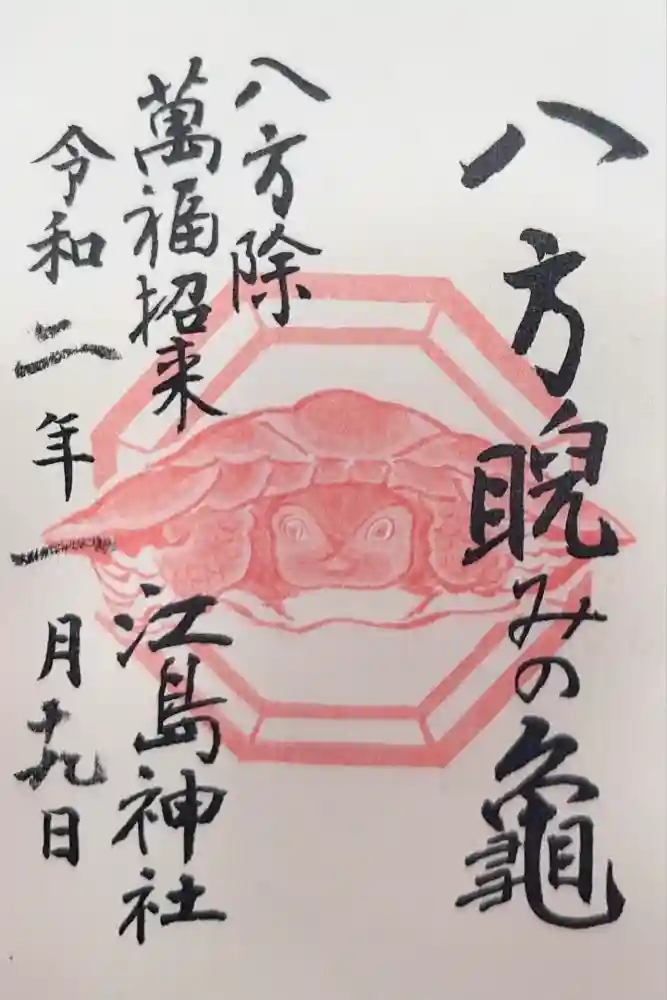 八方睨みの龜
八方除
萬福招来
江島神社
令和二年一月十九日